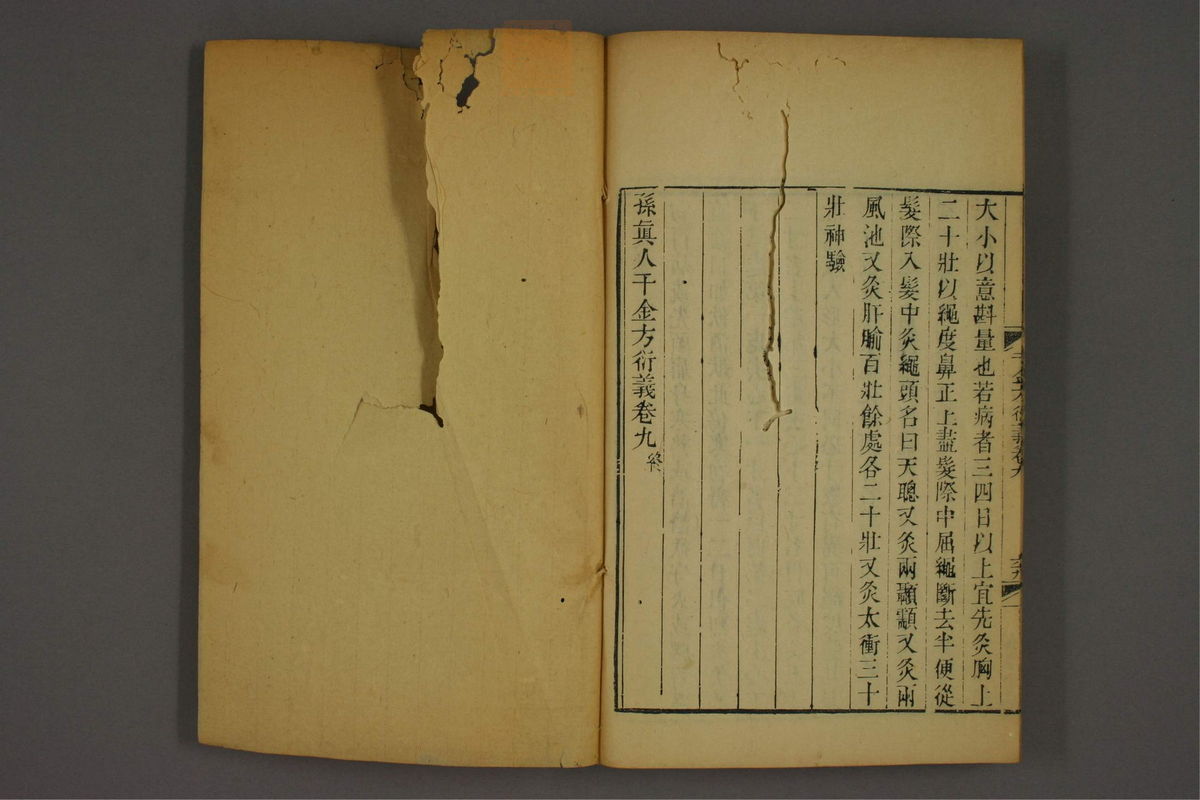 大小以意斟量也若病者三四日以上宜先灸胸上
二十壯以繩度鼻正上盡髮際中屈繩斷去半便從
髮際入髮中灸繩頭名曰天聰又灸兩顳顬又灸兩
風池又灸肝腧百壯餘處各二十壯又灸太衝三十
壯神驗
孫眞人千金方衍義卷九 終